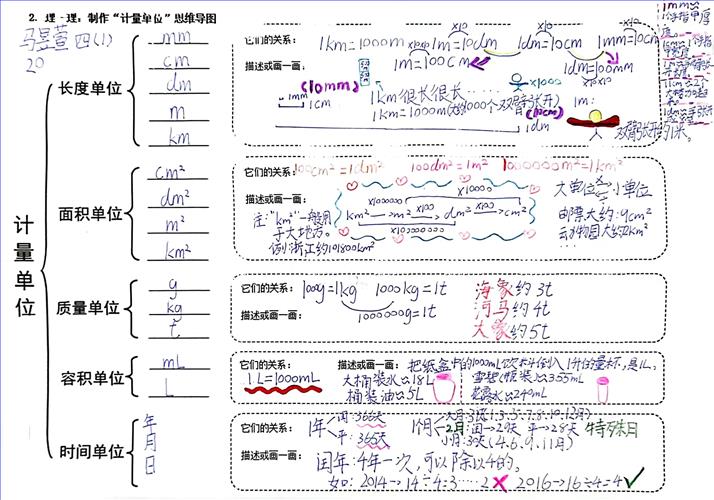 2. 理一理：制作“计量单位”思维导图
马昱萱 四(1)
20
计量单位
长度单位
mm
cm
dm
m
km
它们的关系：1km=1000m 1m=10dm 1dm=10cm 1cm=10mm
x10
x10
1m=100cm
1dm=100mm
描述或画一画：
(10mm)
1mm
1cm
1km很长很长……
x1000
1km=1000m(大约1000个双臂张开)
(10cm)
1dm
1m：
双臂张开约1米。
面积单位
cm²
dm²
m²
km²
它们的关系：100cm²=1dm² 100dm²=1m² 1000000m²=1km²
描述或画一画：
注：“km²”一般用于大地方。
例：浙江约101800km²
x1000000
x10000
km² m² x100 dm² x100 cm²
x100000000
大单位 小单位
邮票大约：9cm²
动物园大约2km²
质量单位
g
kg
t
它们的关系：1000g=1kg 1000kg=1t
描述或画一画：
1000000g=1t
海象约3t
河马约4t
大象约5t
容积单位
mL
L
它们的关系：
1L=1000mL
描述或画一画：把纸盒中的1000mL饮料倒入1升的量杯，是1L。
大桶装水≈18L
桶装油≈5L
雪碧(瓶装)≈355mL
花露水≈240mL
时间单位
年
月
日
它们的关系：
1年
闰：366天
平：365天
1个月
大月：31天(1.3.5.7.8.10.12月)
2月：闰→29天 平→28天 特殊日
小月：30天(4.6.9.11月)
描述或画一画：
闰年：4年一次，可以除以4的。
如：2014→14÷4=3……2 2016→16÷4=4